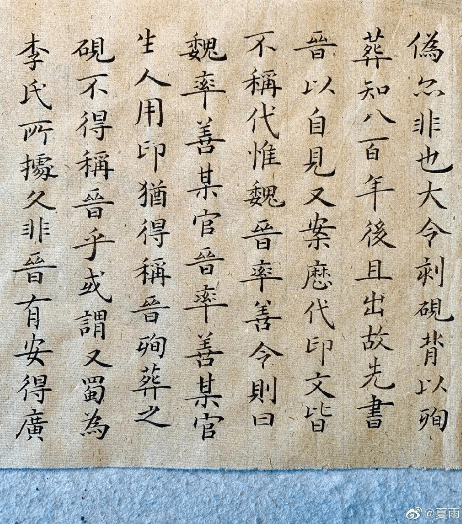 偽亦非也大令剥硯背以殉
葬知八百年後且出故先書
晉以自見又案歷代印文皆
不稱代惟魏晉率善令則曰
魏率善某官晉率善某官
生人用印猶得稱晉殉葬之
硯不得稱晉乎或謂又蜀為
李氏所據久非晉有安得廣
@夏雨